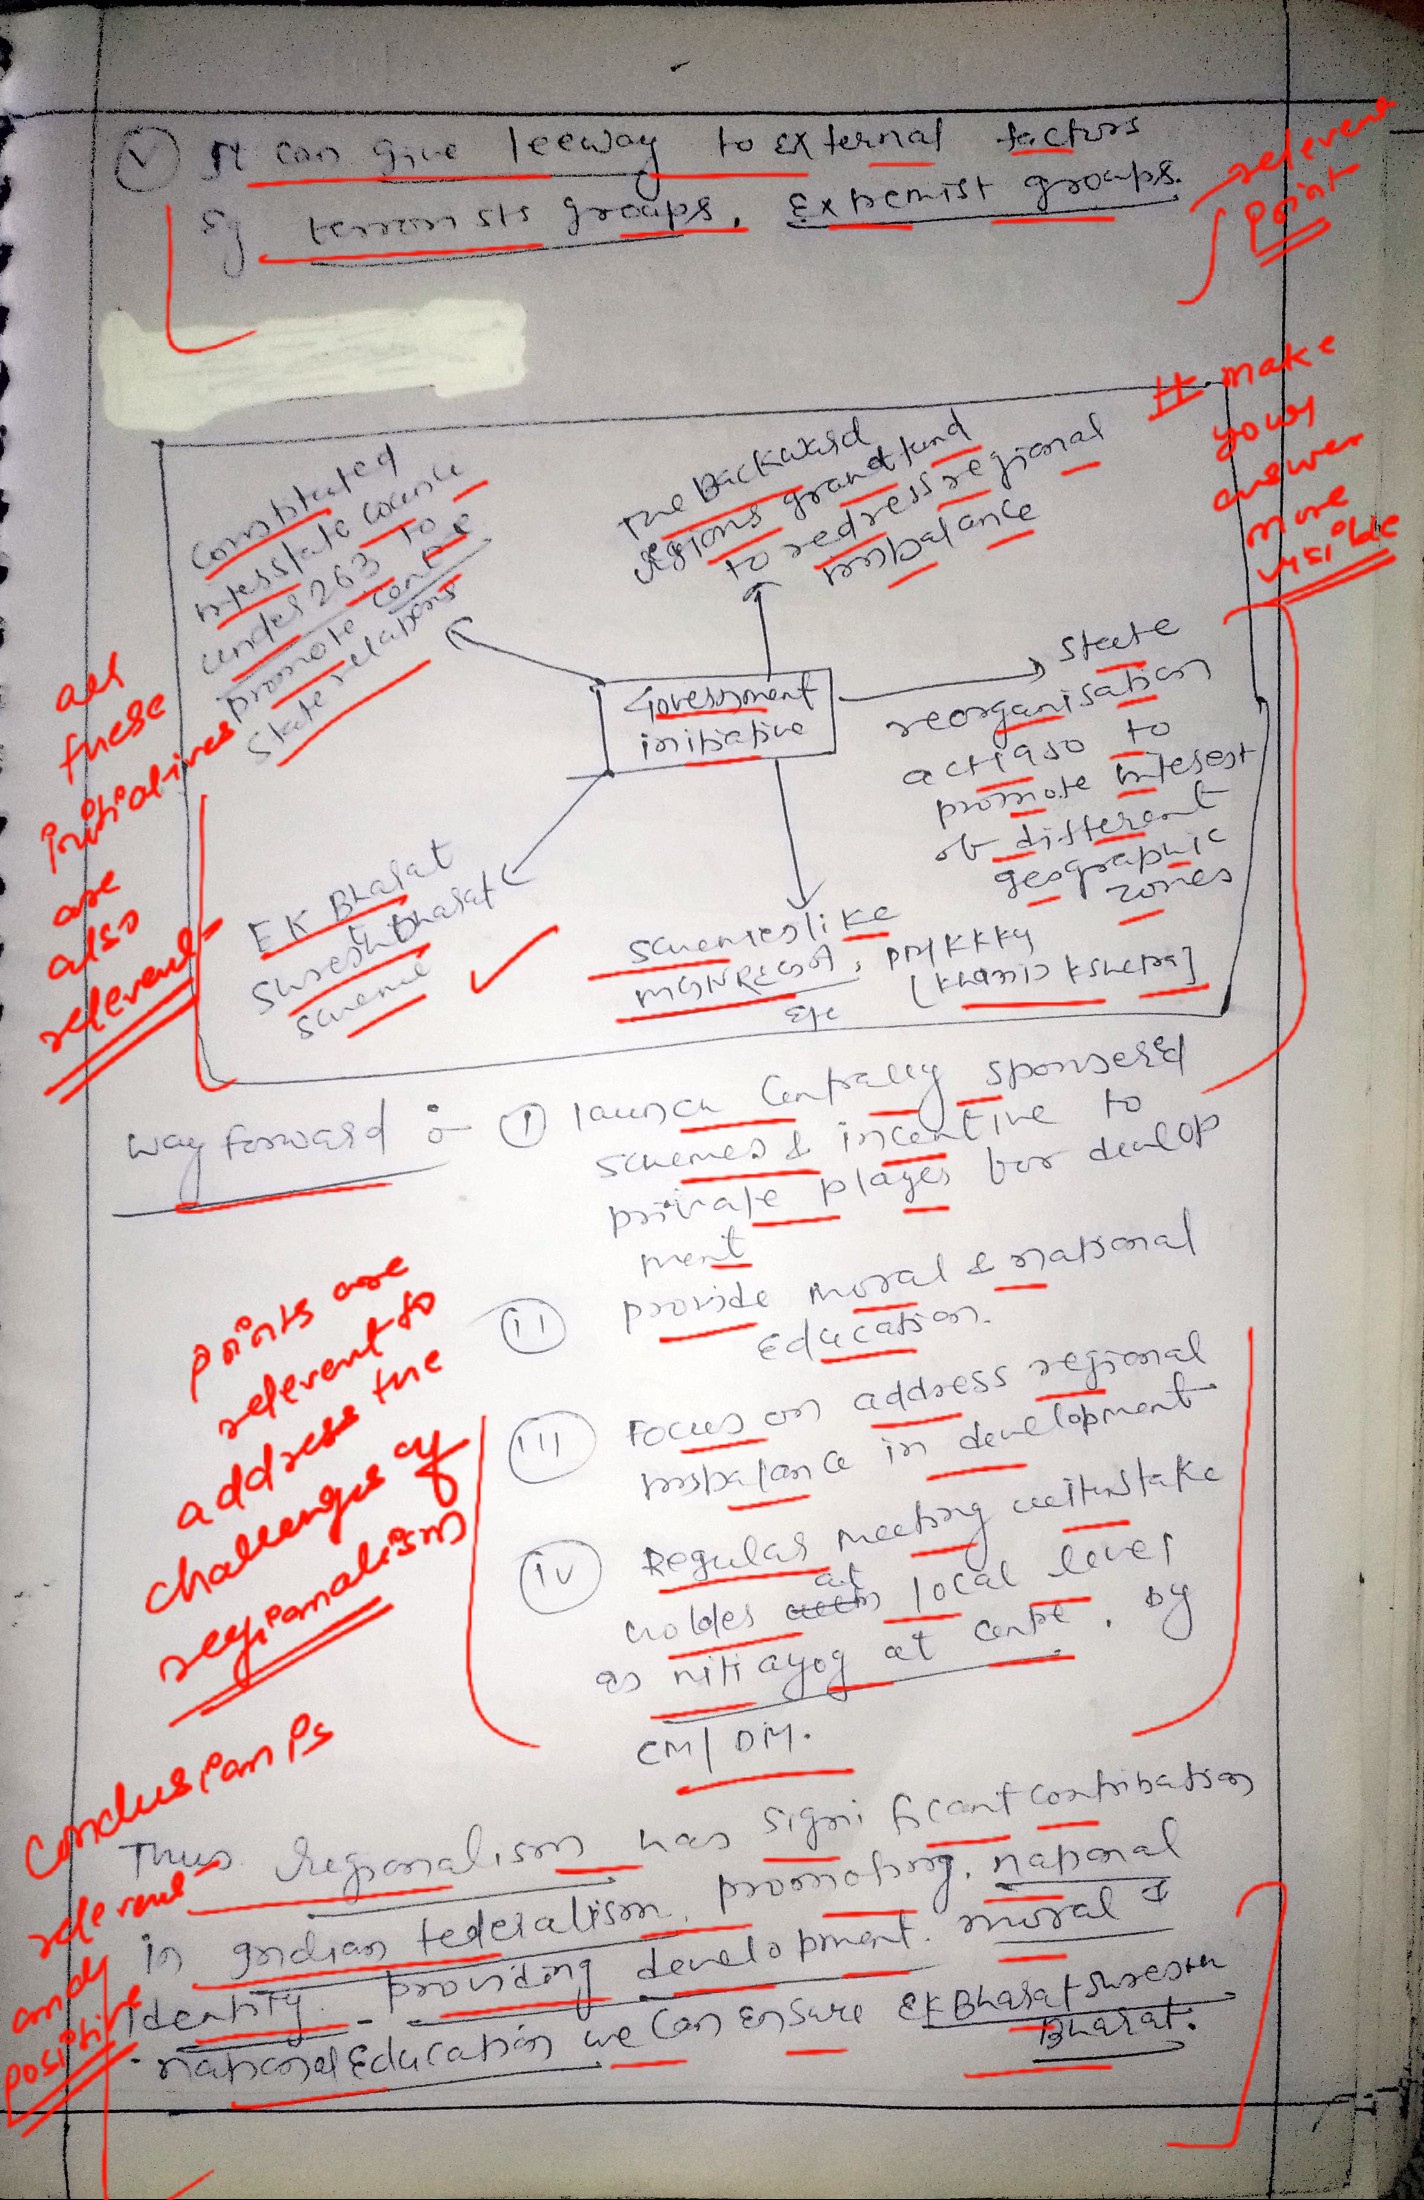 (v) It can give leeway to external factors
Eg terrorists groups, Extremist groups.
relevent
Point
It make
your
answer
more
visible
Constituted
Interstate council
under 263 to
promote centre
state relations
The Backward
regions grant fund
to redress regional
imbalance
Government
initiative
State
reorganisation
act 1950 to
promote interest
of different
geographic
zones
Ek Bharat
Shresth Bharat
scheme
schemes like
MGNREGA, PMKKKY
etc [Khanij Kshetra]
all
these
initiatives
are
also
relevent
Way forward :- (i) launch Centrally sponsered
schemes & incentive to
private player for develop
ment
(ii) provide moral & national
Education.
(iii) Focus on address regional
imbalance in development
(iv) Regular meeting with stake
holdes at local level
as niti ayog at centre, by
CM/DM.
points are
relevent to
address the
challenges of
regionalism
Conclusion is
relevent
and
positive
Thus regionalism has significant contribution
in Indian federalism. promoting national
identity. providing development. moral &
national Education we can ensure Ek Bharat Shresth
Bharat.